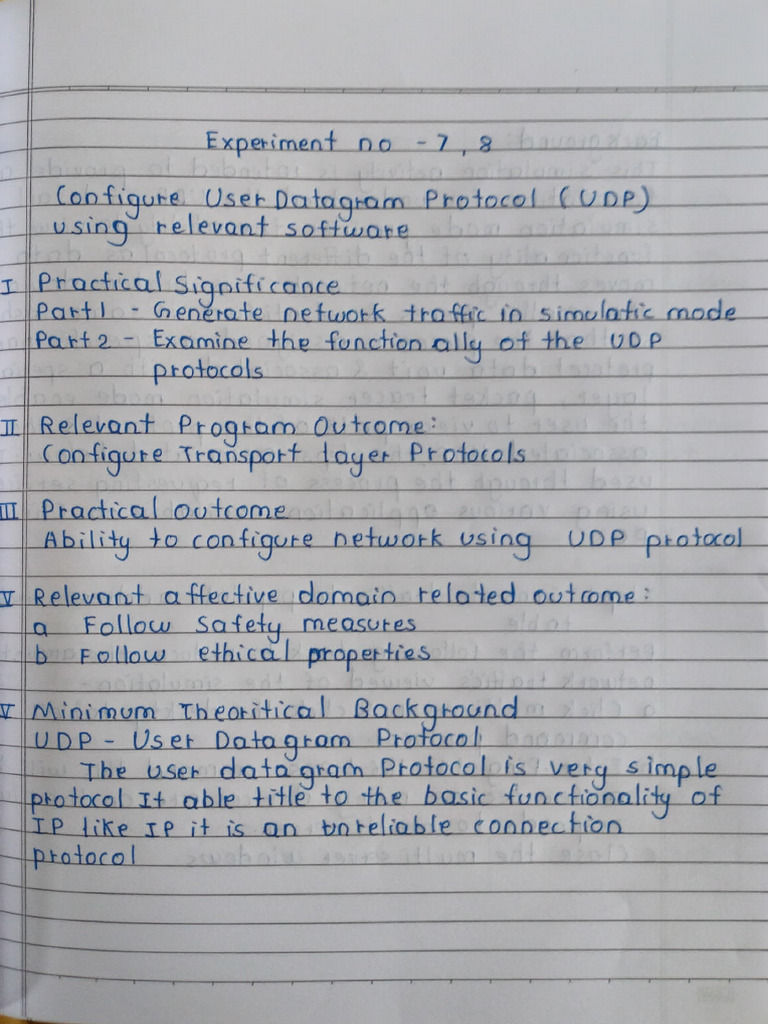 Experiment no - 7, 8
Configure User Datagram Protocol (UDP)
using relevant software
I Practical Significance
Part 1 - Generate network traffic in simulatic mode
Part 2 - Examine the function ally of the UDP
protocols
II Relevant Program Outcome:
Configure Transport layer Protocols
III Practical outcome
Ability to configure network using UDP protocol
V Relevant affective domain related outcome:
a Follow safety measures
b Follow ethical properties
V Minimum Theoritical Background
UDP - User Datagram Protocol
The user datagram Protocol is very simple
protocol It able title to the basic functionality of
IP like IP it is an unreliable connection
protocol